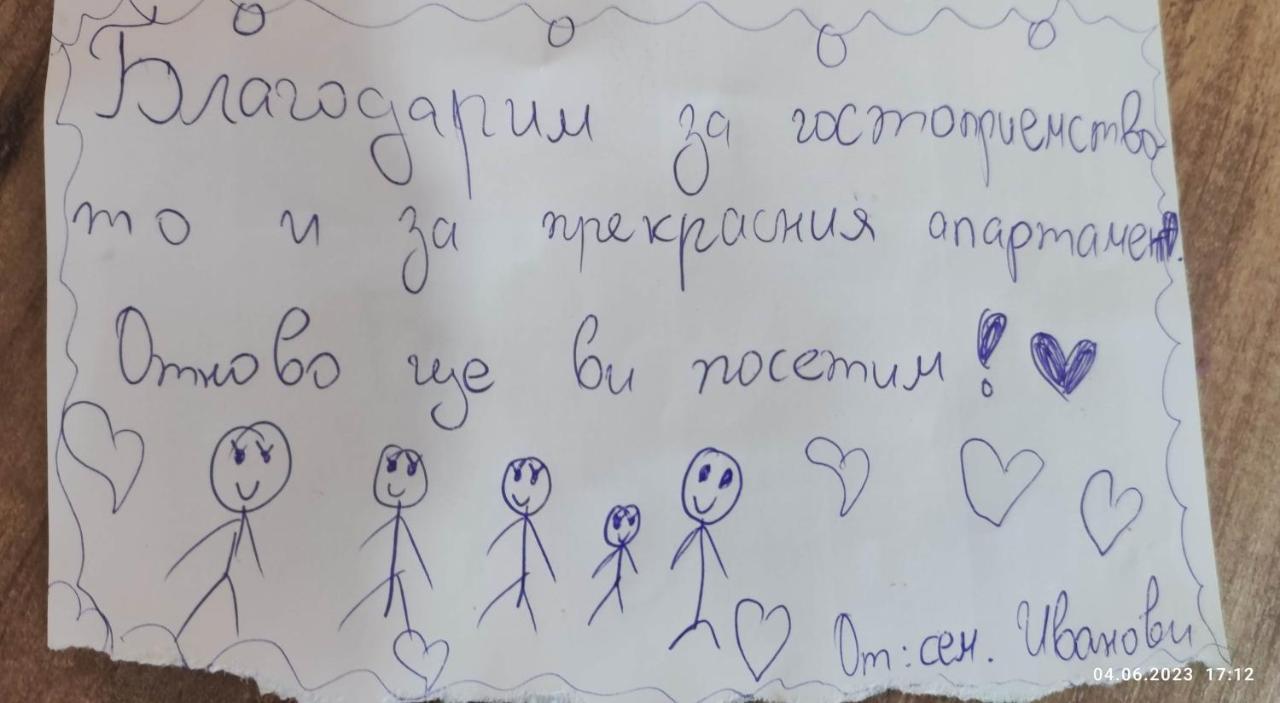 Благодарим за гостоприемство
то и за прекрасния апартамент.
Отново ще ви посетим!
От: сем. Иванови
04.06.2023 17:12